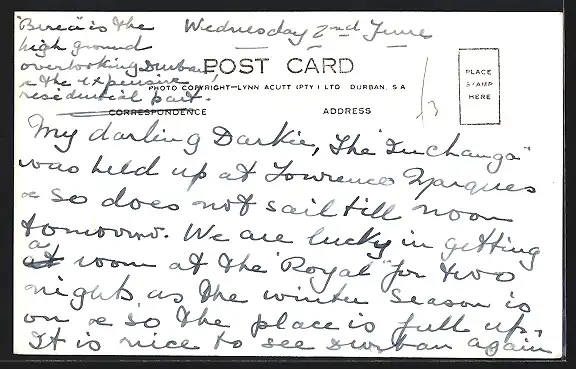 "Berea" is the
high ground
overlooking Durban,
& the expensive
residential part.
Wednesday 2nd June
POST CARD
PHOTO COPYRIGHT—LYNN ACUTT (PTY) LTD DURBAN, S A
PLACE
STAMP
HERE
CORRESPONDENCE ADDRESS
My darling Darkie, The "Inchanga"
was held up at Lourenco Marques
& so does not sail till noon
tomorrow. We are lucky in getting
a room at the "Royal" for two
nights as the winter season is
on & so the place is full up.
It is nice to see Durban again